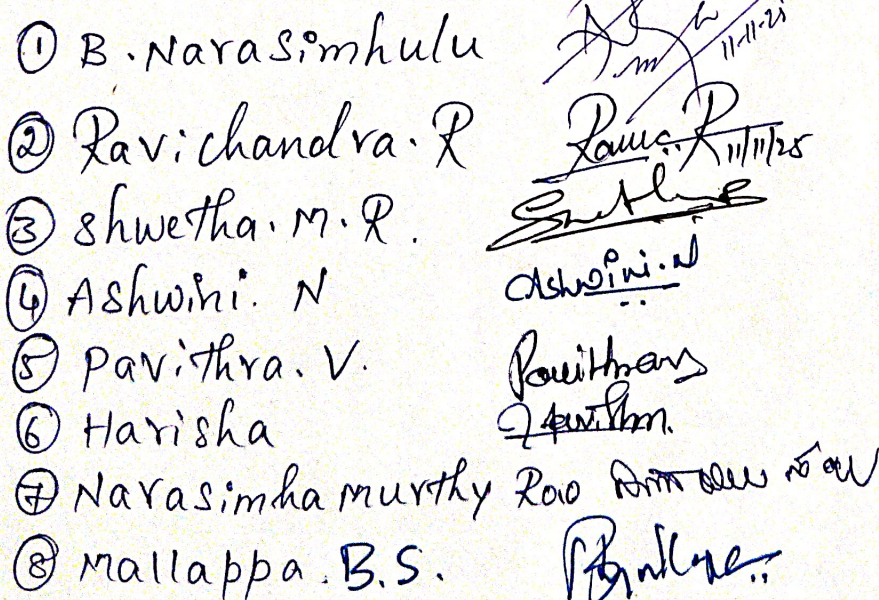 ① B. Narasimhulu 11-11-25
② Ravichandra. R 11/11/25
③ Shwetha. M. R.
④ Ashwini. N Ashwini. N
⑤ Pavithra. V. Pavithra
⑥ Harisha
⑦ Narasimha murthy Rao
⑧ Mallappa. B.S.